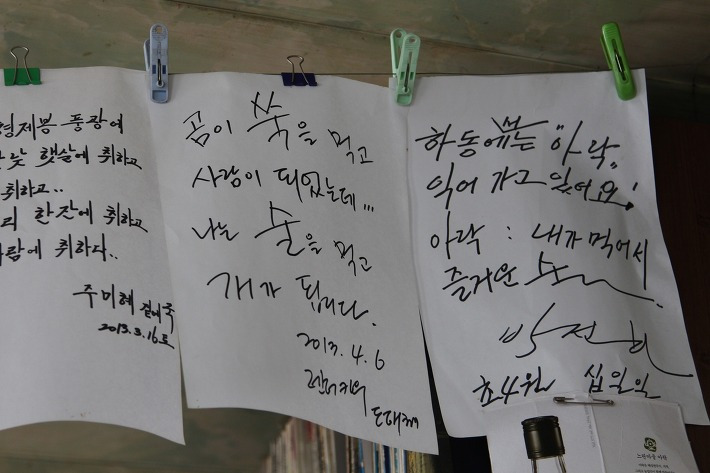 형제봉 풍광에
낮 햇살에 취하고
취하고..
리 한잔에 취하고
람에 취하다..
주미혜
2013.3.16
곰이 쑥을 먹고
사람이 되었는데...
나는 술을 먹고
개가 됩니다.
2013. 4. 6
하동에는 "아락"
익어 가고 있어요!
아락 : 내가 먹어서
즐거운 술
십일일
느린마을 아락